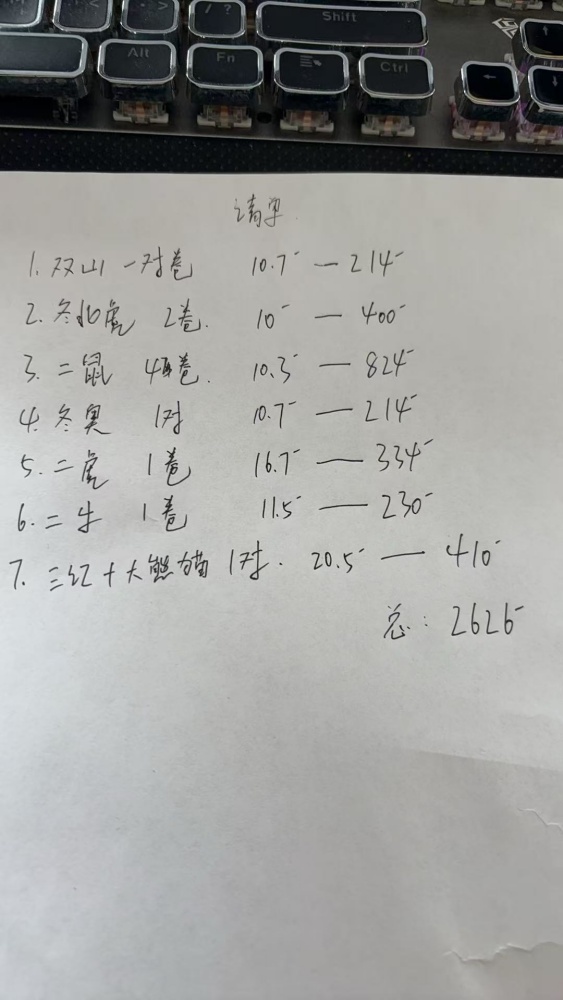 / ?
Shift
Alt
Fn
Ctrl
清单
1. 双山 一对卷 10.7 — 214
2. 冬北虎 2卷. 10 — 400
3. 二鼠 4卷. 10.3 — 824
4. 冬奥 1对 10.7 — 214
5. 二虎 1卷 16.7 — 334
6. 二牛 1卷 11.5 — 230
7. 三红+大熊猫 1对. 20.5 — 410
总: 2626